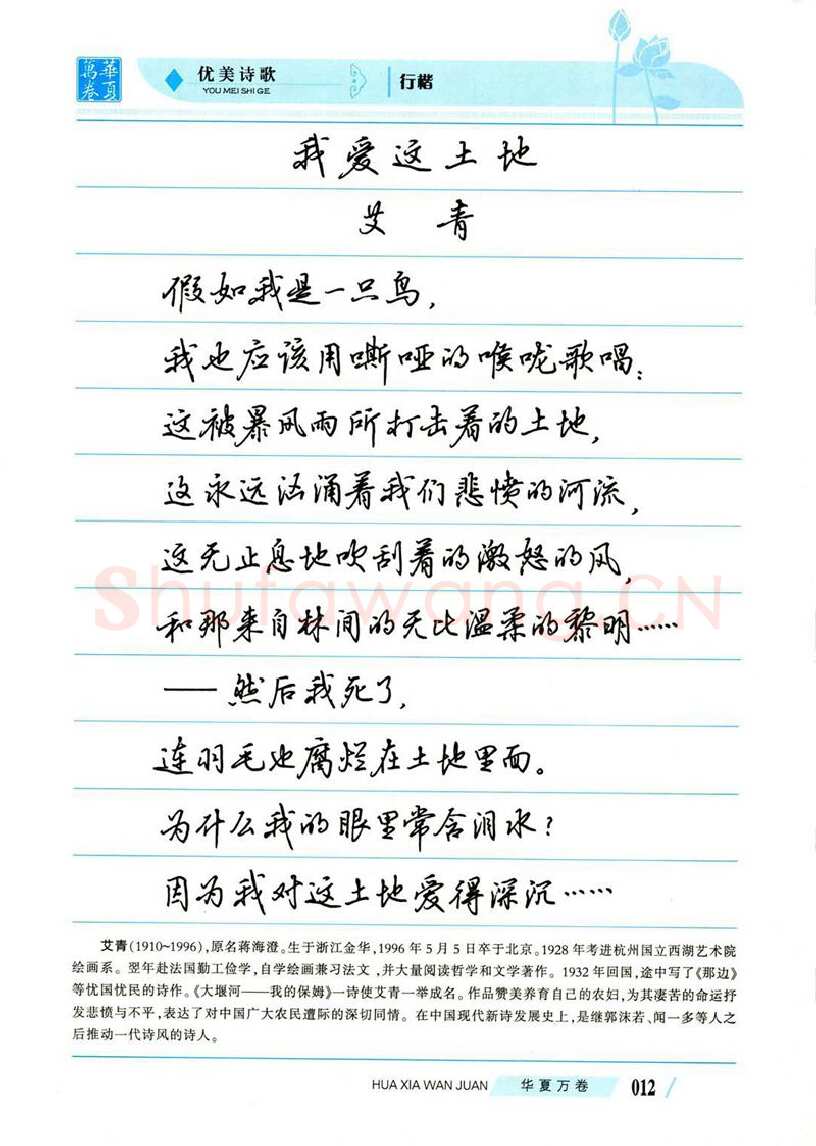 華夏萬卷
优美诗歌
YOU MEI SHI GE
行楷
我爱这土地
艾 青
假如我是一只鸟，
我也应该用嘶哑的喉咙歌唱：
这被暴风雨所打击着的土地，
这永远汹涌着我们悲愤的河流，
这无止息地吹刮着的激怒的风，
和那来自林间的无比温柔的黎明……
——然后我死了，
连羽毛也腐烂在土地里面。
为什么我的眼里常含泪水？
因为我对这土地爱得深沉……
Shufawang.CN
艾青(1910~1996),原名蒋海澄。生于浙江金华,1996年5月5日卒于北京。1928年考进杭州国立西湖艺术院
绘画系。翌年赴法国勤工俭学,自学绘画兼习法文,并大量阅读哲学和文学著作。1932年回国,途中写了《那边》
等忧国忧民的诗作。《大堰河——我的保姆》一诗使艾青一举成名。作品赞美养育自己的农妇,为其凄苦的命运抒
发悲愤与不平,表达了对中国广大农民遭际的深切同情。在中国现代新诗发展史上,是继郭沫若、闻一多等人之
后推动一代诗风的诗人。
HUA XIA WAN JUAN 华夏万卷 012